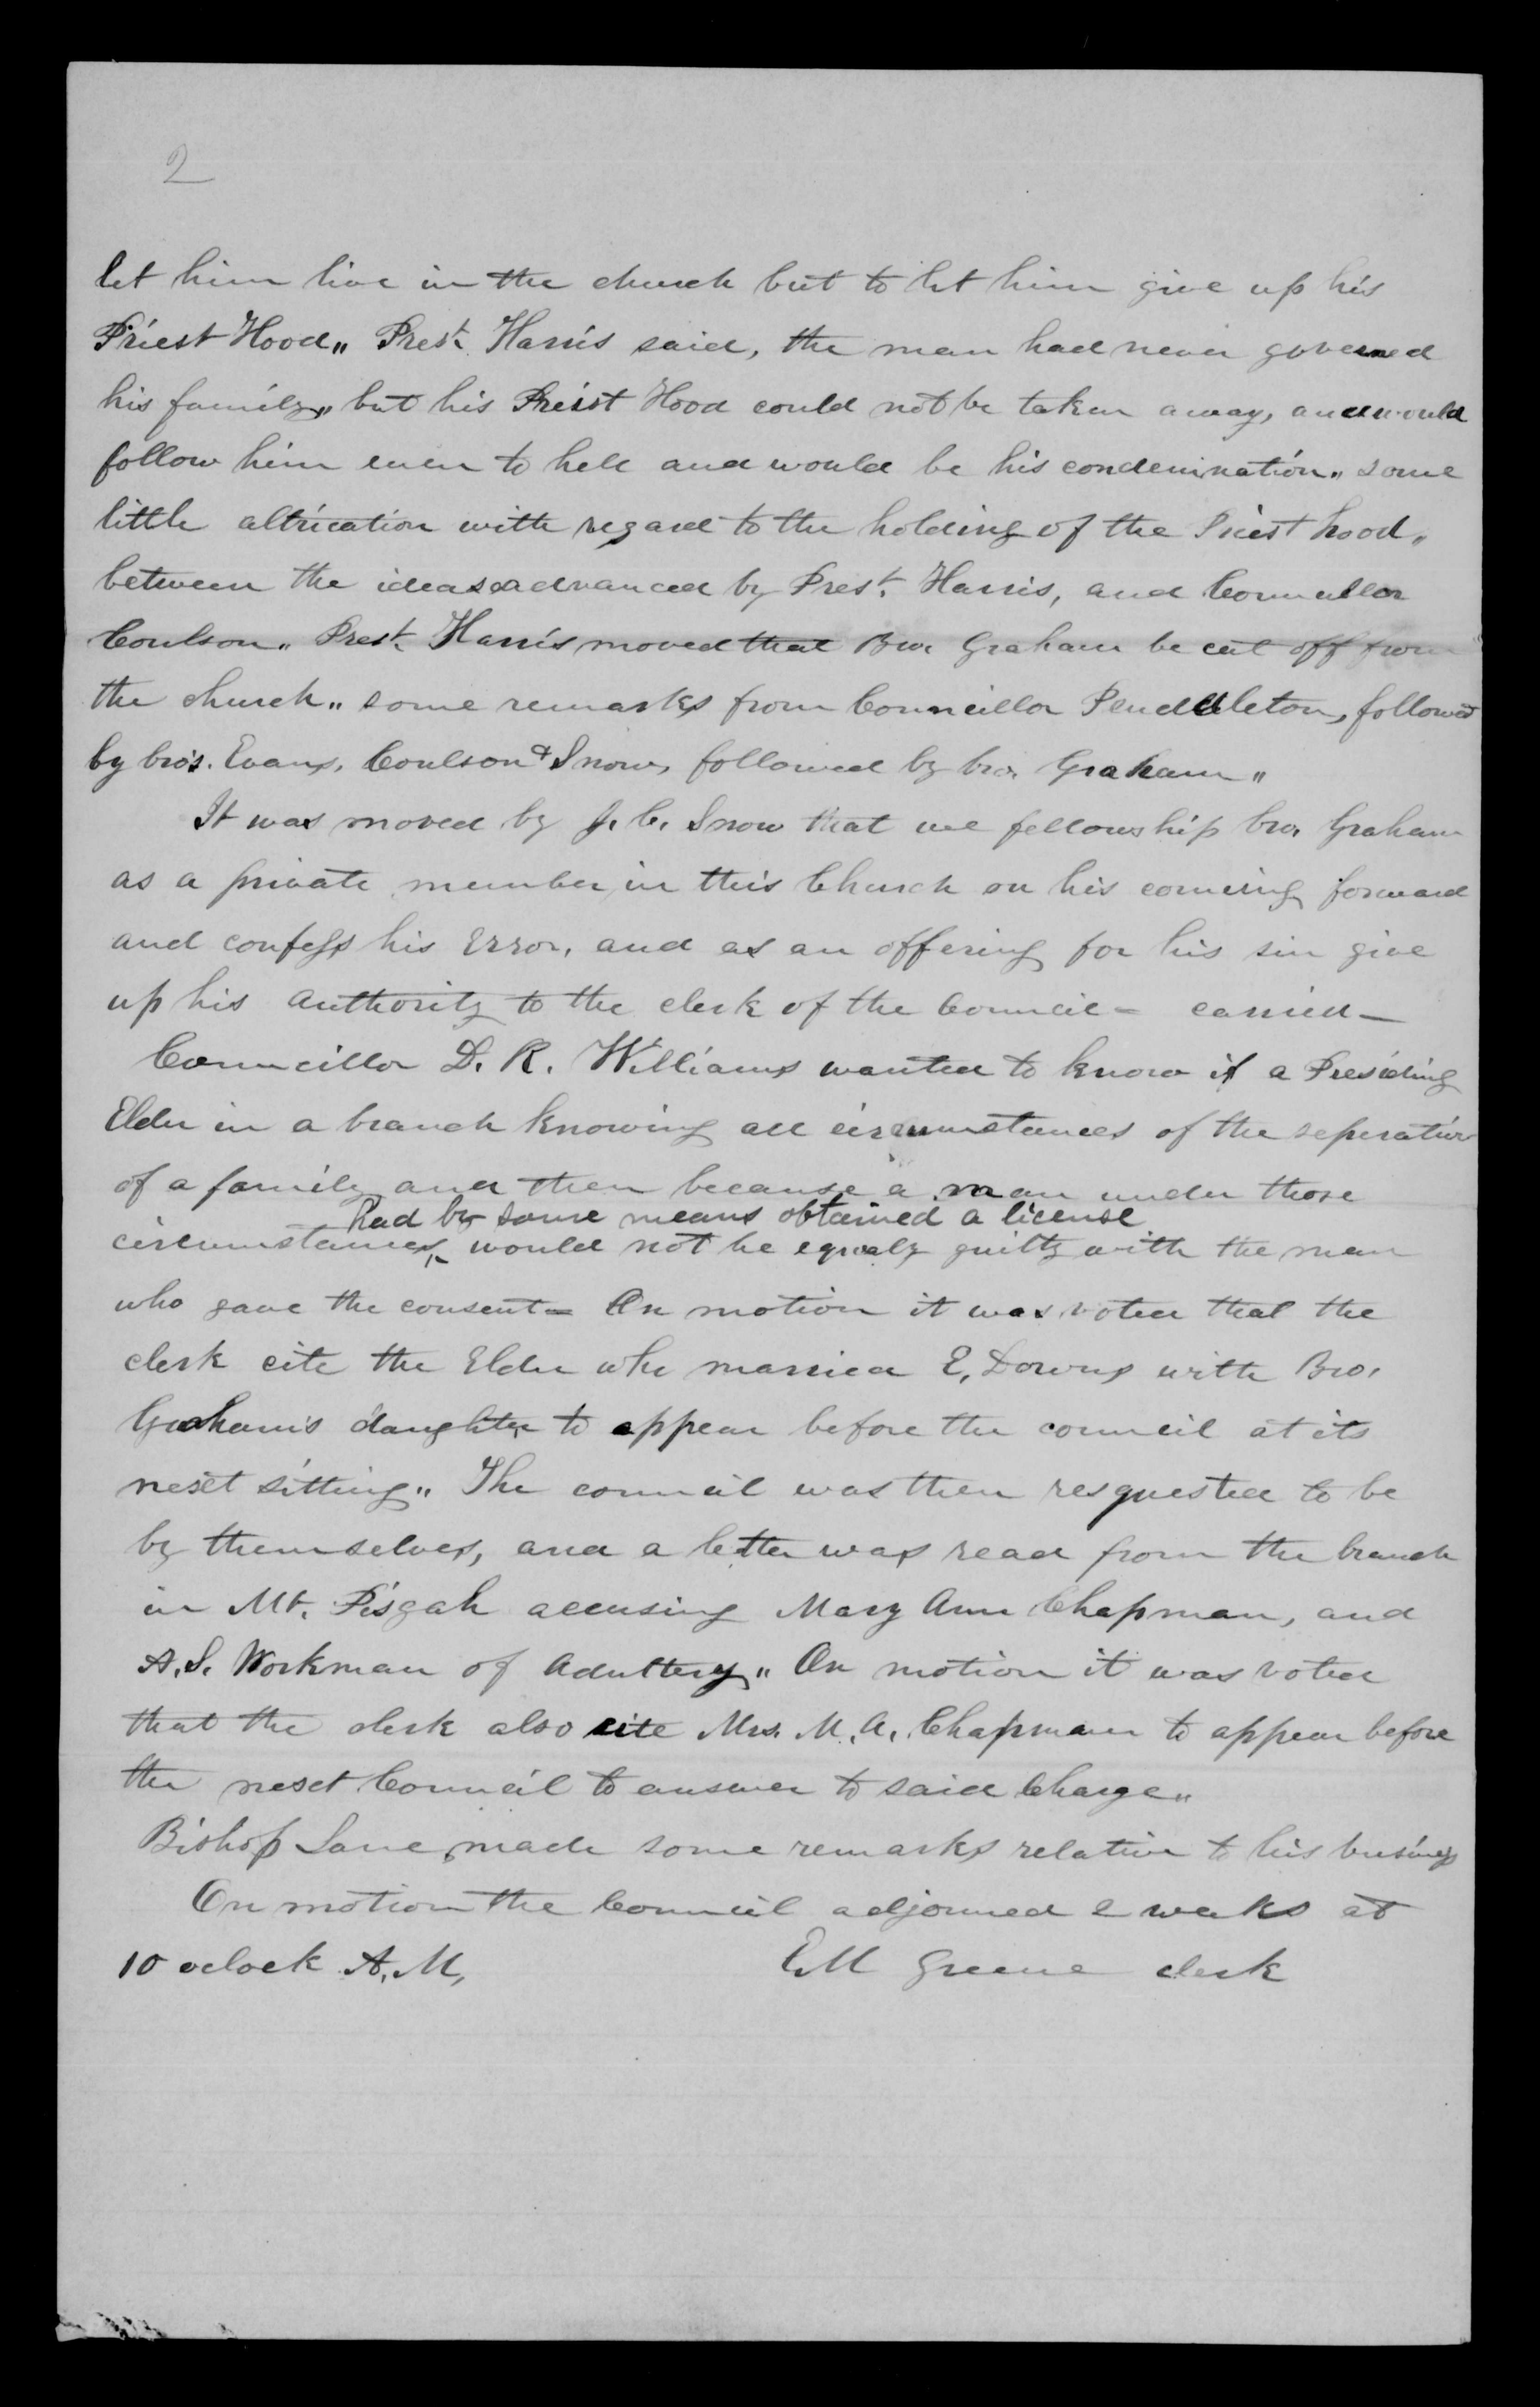 2
let him live in the church but to let him give up his
Priest Hood„ Prest. Harris said, the man had never governed
his family„ but his Preist Hood could not be taken away, and would
follow him even to hell and would be his condemination„ some
little altrication with regard to the holding of the Priest hood„
between the ideas advanced by Prest. Harris, and Councillor
Coulson„ Prest. Harris moved that Bro. Graham be cut off from
the church„ some remarks from Councillor Penddleton, followed
by bro's. Evans, Coulson & Snow, followed by bro. Graham„
It was moved by J. C. Snow that we fellowship bro. Graham
as a private member in this Church on his coming forward
and confess his Error, and as an offering for his sin give
up his authority to the clerk of the Council = carried —
Councillor D. R. Williams wanted to know if a Presiding
Elder in a branch knowing all circumstances of the seperation
of a family and then because a man under those
had by some means obtained a license
circumstances, ^ would not be equaly guilty with the man
who gave the consent = On motion it was voted that the
clerk cite the Elder who married E, Downs with Bro.
Graham's daughter to appear before the council at its
next sitting„ The council was then resquested to be
by themselves, and a letter was read from the branch
in Mt. Pisgah accusing Mary Ann Chapman, and
A. S. Workman of Adultery„ On motion it was voted
that the clerk also cite Mrs. M. A. Chapman to appear before
the next Council to answer to said Charge„
Bishop Lane made some remarks relative to his business
On motion the Council adjourned 2 weeks at
10 oclock A. M, E. M Greene clerk